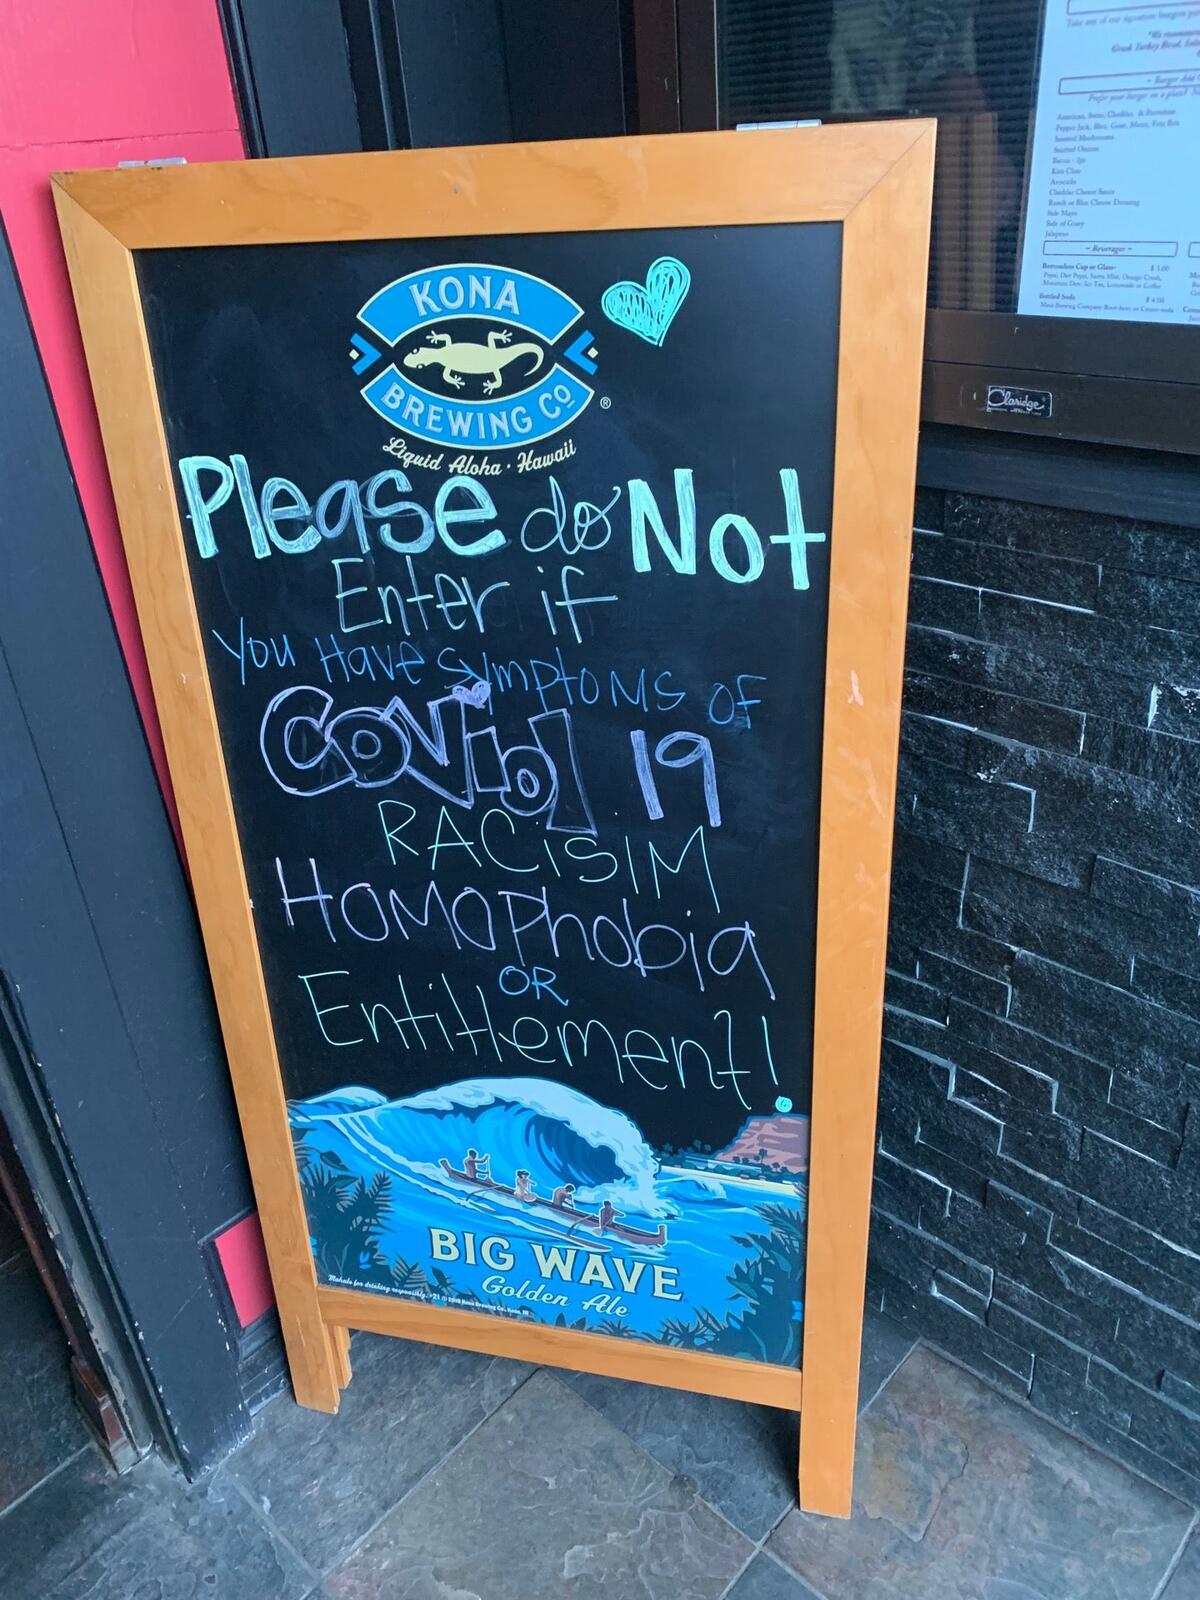 KONA
BREWING CO
®
Liquid Aloha · Hawaii
Please do Not
Enter if
You Have Symptoms of
COVid 19
RACisiM
Homophobia
OR
Entitlement!
BIG WAVE
Golden Ale
Mahalo for drinking responsibly. +21 © 2019 Kona Brewing Co., Kona, HI
Take any of our signature burgers
- Burger Add
Prefer your burger on a plate?
American, Swiss, Cheddar, & Provolone
Pepper Jack, Bleu, Goat, Mozza, Feta
Sautéed Mushrooms
Sautéed Onions
Bacon - 2pc
Kim Chee
Avocado
Cheddar Cheese Sauce
Ranch or Blue Cheese Dressing
Side Mayo
Side of Gravy
Jalapeno
~ Beverages ~
Bottomless Cup or Glass- $3.00
Pepsi, Diet Pepsi, Sierra Mist, Orange Crush,
Mountain Dew, Ice Tea, Lemonade or Coffee
Bottled Soda $4.00
Maui Brewing Company Root-beer or
Claridge